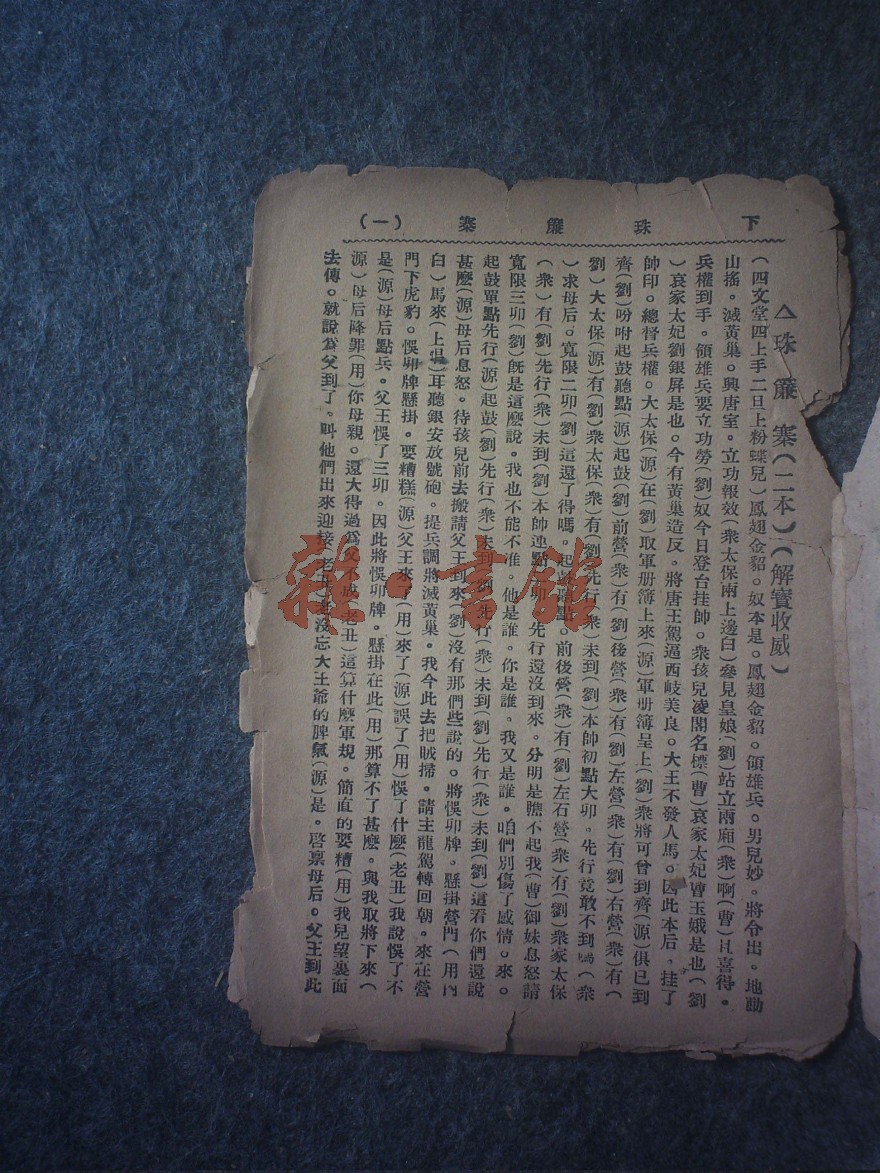 下珠簾寨（一）
△珠簾寨（二本）（解寶收威）
（四文堂四上手二旦上粉蝶兒）鳳翅金貂。奴本是。鳳翅金貂。領雄兵。男兒妙。將令出。地動
山搖。滅黃巢。興唐室。立功報效（衆太保兩上邊白）參見皇娘（劉）站立兩廂（衆）啊（曹）且喜得。
兵權到手。領雄兵要立功勞（劉）奴今日登台挂帥。衆孩兒凌閣名標（曹）哀家太妃曹玉娥是也（劉
）哀家太妃劉銀屏是也。今有黃巢造反。將唐王駕逼西岐美良。大王不發人馬。因此本后。挂了
帥印。總督兵權。大太保（源）在（劉）取軍册簿上來（源）軍册簿呈上（劉）衆將可曾到齊（源）俱已到
齊（劉）吩咐起鼓聽點（源）起鼓（劉）前營（衆）有（劉）後營（衆）有（劉）左營（衆）有（劉）右營（衆）有（
劉）大太保（源）有（劉）衆太保（衆）有（劉）先行（衆）未到（劉）本帥初點大卯。先行竟敢不到嗎（衆
）求母后。寬限二卯（劉）這還了得嗎。起鼓聽點。前後營（衆）有（劉）左右營（衆）有（劉）衆家太保
（衆）有（劉）先行（衆）未到（劉）本帥連點二卯。先行還沒到來。分明是瞧不起我（曹）御妹息怒請
寬限三卯（劉）旣是這麽說。我也不能不准。他是誰。你是誰。我又是誰。咱們別傷了感情。來。
起鼓單點先行（源）起鼓（劉）先行（衆）未到（劉）先行（衆）未到（劉）先行（衆）未到（劉）這看你們還說
甚麽（源）母后息怒。待孩兒前去搬請父王到來（劉）沒有那們些說的。將悞卯牌。懸掛營門（用內
白）馬來（上唱）耳聽銀安放號砲。提兵調將滅黃巢。我今此去把賊掃。請主龍駕轉回朝。來在營
門下虎豹。悞卯牌懸掛。要糟糕（源）父王來了（用）來了（源）誤了（用）悞了什麽（老丑）我說悞了不
是（源）母后點兵。父王悞了三卯。因此將悞卯牌。懸掛在此（用）那算不了甚麽。與我取將下來（
源）母后降罪（用）你母親。還大得過爲父
老丑）這算什麽軍規。簡直的要糟（用）我兒望裏面
去傳。就說爲父到了。叫他們出來迎接（老丑
沒忘大王爺的脾氣（源）是。啓禀母后。父王到此
雜·書館